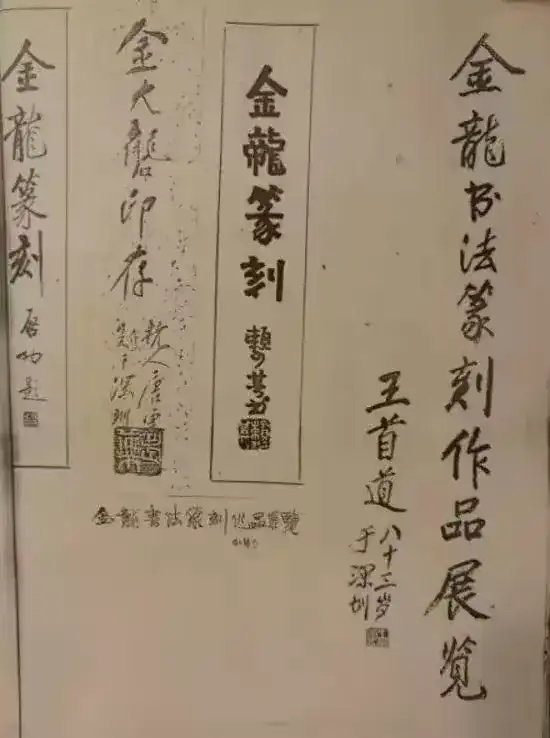 金龍书法篆刻作品展览
王首道
八十三岁
于深圳
金龍篆刻
金大龍印存
深圳
金龍篆刻
启功题
金龍書法篆刻作品展覽